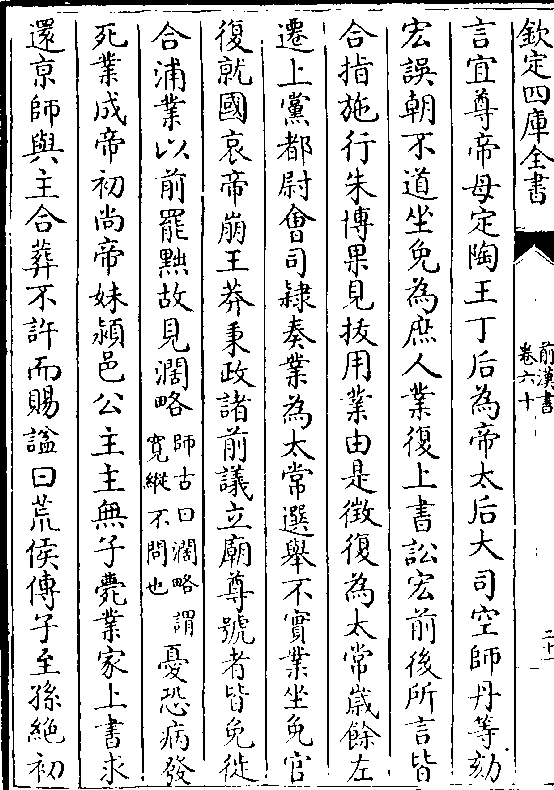 欽定四庫全書
前漢書
卷六十
二十
言宜尊帝母定陶王丁后為帝太后大司空師丹等劾
宏誤朝不道坐免為庶人業復上書訟宏前後所言皆
合指施行朱博果見拔用業由是徵復為太常歲餘左
遷上黨都尉會司隸奏業為太常選舉不實業坐免官
復就國哀帝崩王莽秉政諸前議立廟尊號者皆免徙
合浦業以前罷黜故見濶略師古曰濶略謂寛縱不問也憂恐病發
死業成帝初尚帝妹潁邑公主主無子薨業家上書求
還京師與主合葬不許而賜諡曰荒侯傳子至孫絶初